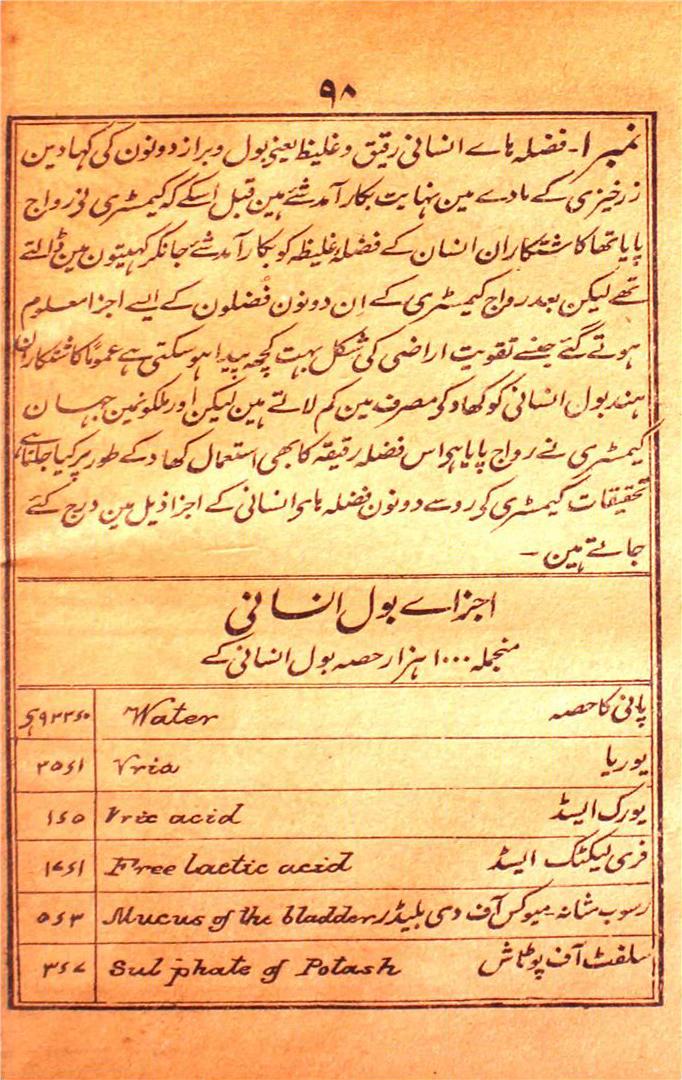 ۹۸
نمبر ۱۔ فضلہ ہاے انسانی رقیق وغلیظ یعنے بول وبراز دونون کی کہادین
زرخیزی کے مادے مین نہایت بکارآمد شئے ہین قبل اسکے کہ کیمسٹری نے رواج
پایا تھا کاشتکاران انسان کے فضلہ غلیظہ کو بکارآمد شئے جانکر کہیتون مین ڈالتے
تھے لیکن بعد رواج کیمسٹری کے ان دونون فضلون کے ایسے اجزا معلوم
ہوتے گئے جنسے تقویت اراضی کی شکل بہت کچھ پیدا ہوسکتی ہے عمومًا کاشتکاران
ہند بول انسانی کو کھاد کی مصرف مین کم لاتے ہین لیکن اور ملکونمین جہان
کیمسٹری نے رواج پایا ہو اس فضلہ رقیقہ کا بھی استعمال کھاد کے طور پر کیا جاتا ہے
تحقیقات کیمسٹری کی روسے دونون فضلہ ہاے انسانی کے اجزا ذیل مین درج کئے
جاتے ہین ۔
اجزاے بول انسانی
منجملہ ۱۰۰۰ ہزار حصہ بول انسانی کے
پانی کا حصہ Water ۹۳۳؍۰
یوریا Vria ۳۰؍۱
یورک ایسڈ Vric acid ۱؍۰
فری لیکٹک ایسڈ Free lactic acid ۱۷؍۱
رسوب مثانہ ۔ میوکس آف دی بلیڈر Mucus of the bladder ۰؍۳
سلفٹ آف پوٹاش Sulphate of Potash ۳؍۷